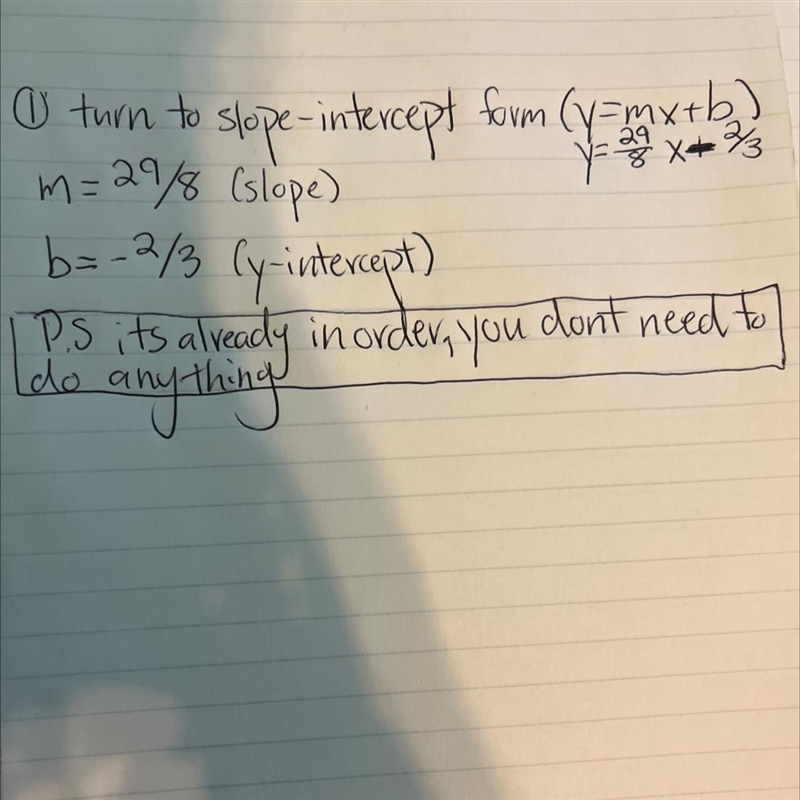 ① turn to slope-intercept form (y=mx+b)
y=29/8 x - 2/3
m=29/8 (slope)
b=-2/3 (y-intercept)
P.S its already in order, you dont need to
do anything